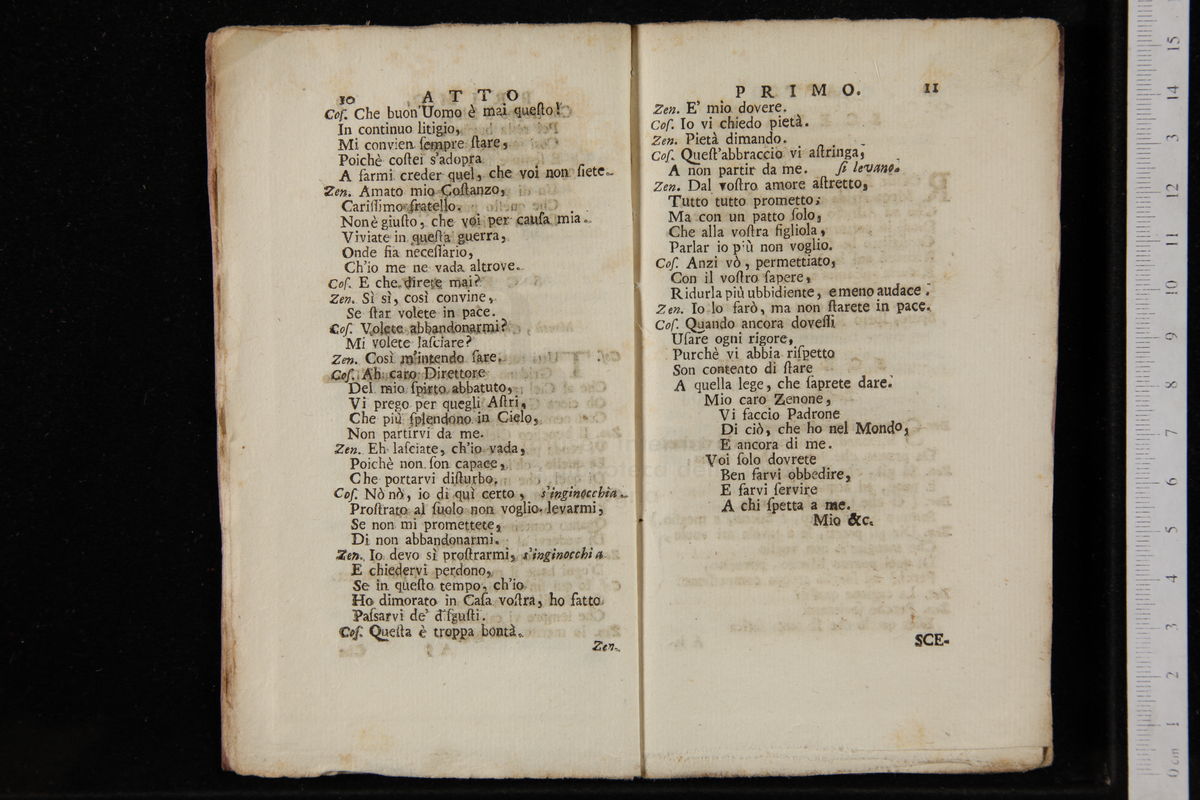 10 ATTO
Coſ. Che buon'Uomo è mai queſto!
In continuo litigio,
Mi convien ſempre ſtare,
Poichè coſtei s'adopra
A farmi creder quel, che voi non ſiete.
Zen. Amato mio Coſtanzo,
Cariſſimo fratello.
Non è giuſto, che voi per cauſa mia.
Viviate in queſta guerra,
Onde fia neceſſario,
Ch'io me ne vada altrove.
Coſ. E che direte mai?
Zen. Sì sì, così convine,
Se ſtar volete in pace.
Coſ. Volete abbandonarmi?
Mi volete laſciare?
Zen. Così m'intendo fare.
Coſ. Ah caro Direttore
Del mio ſpirto abbatuto,
Vi prego per quegli Aſtri,
Che più ſplendono in Cielo,
Non partirvi da me.
Zen. Eh laſciate, ch'io vada,
Poichè non ſon capace,
Che portarvi diſturbo.
Coſ. Nò nò, io di quì certo, s'inginocchia.
Proſtrato al ſuolo non voglio levarmi,
Se non mi promettete,
Di non abbandonarmi.
Zen. Io devo sì proſtrarmi, s'inginocchia
E chiedervi perdono,
Se in queſto tempo, ch'io
Ho dimorato in Caſa voſtra, ho fatto
Paſsarvi de' diſguſti.
Coſ. Queſta è troppa bontà.
Zen.
PRIMO. 11
Zen. E' mio dovere.
Coſ. Io vi chiedo pietà.
Zen. Pietà dimando.
Coſ. Queſt'abbraccio vi aſtringa,
A non partir da me. ſi levano.
Zen. Dal voſtro amore aſtretto,
Tutto tutto prometto;
Ma con un patto ſolo,
Che alla voſtra figliola,
Parlar io più non voglio.
Coſ. Anzi vò, permettiato,
Con il voſtro ſapere,
Ridurla più ubbidiente, e meno audace.
Zen. Io lo farò, ma non ſtarete in pace.
Coſ. Quando ancora doveſſi
Uſare ogni rigore,
Purchè vi abbia riſpetto
Son contento di ſtare
A quella lege, che ſaprete dare.
Mio caro Zenone,
Vi faccio Padrone
Di ciò, che ho nel Mondo,
E ancora di me.
Voi ſolo dovrete
Ben farvi obbedire,
E farvi ſervire
A chi ſpetta a me.
Mio &c.
SCE-